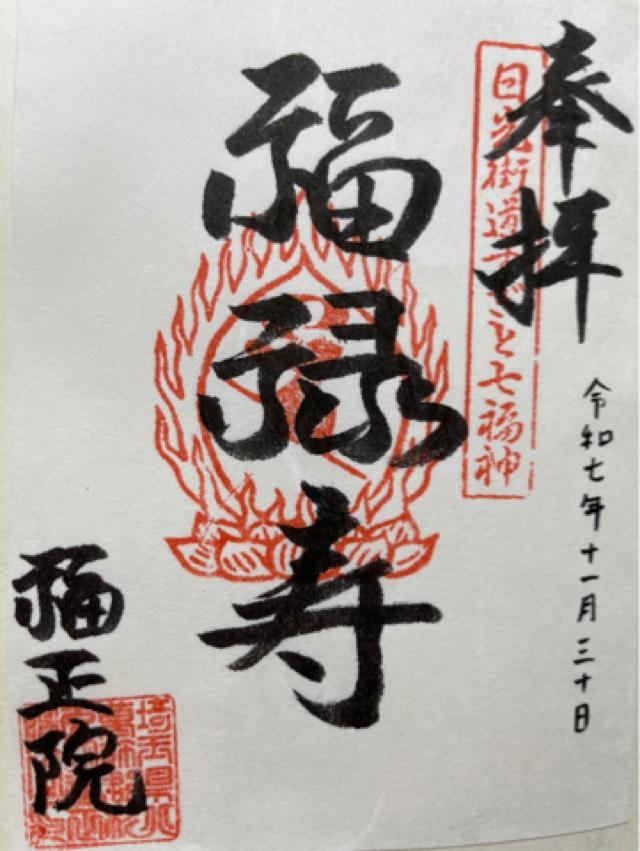 奉拝
日光街道すぎと七福神
令和七年十一月三十日
福禄寿
福正院